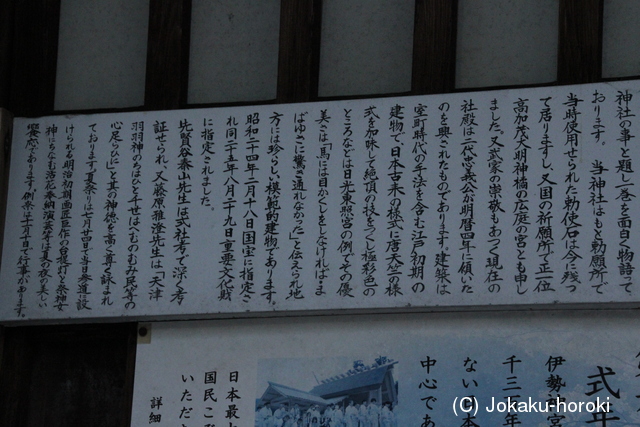 神社の事と題し一巻を面白く物語って
おります。 当神社はもと勅願所で
当時使用せられた勅使石は今も残っ
て居りますし、又国の祈願所で正一位
高加茂大明神橘の広庭の宮とも申し
ました。又武家の崇敬もあつく現在の
社殿は二代忠義公が明暦四年に傾いた
のを興されたものであります。建築は
室町時代の手法を含む江戸初期の
建物で、日本古来の様式に唐天竺の様
式を加味して絶頂の技をつくし極彩色の
ところなどは日光東照宮の例でその優
美さは「馬には目かくしをしなければ・ま
ばゆさに驚き通れなかった」と伝えられ地
方には珍らしい模範的建物であります。
昭和二十四年二月十八日国宝に指定さ
れ同二十五年八月二十九日重要文化財
に指定されました。
比賀公泰山先生は式社考で深く考
証せられ、又藤原雅澄先生は「天津
羽羽神のちはひを千世はへものむみ民等の
心足らに」と其の神徳を高く尊く詠まれ
ております。夏祭りは七月廿四日で当日参道に設
けられる明治初期画匠
神にちなむ活花奉納演芸
饗宴であります。例祭は十一月十一日で行事があります。
式年
伊勢神宮
千三
ない日本
中心であ
日本最
国民こ
いただ
詳細
(C) Jokaku-horoki